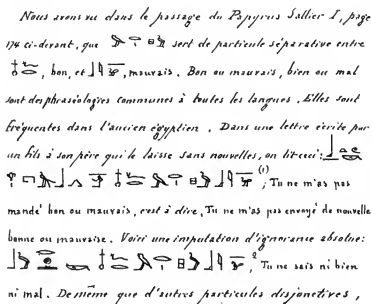 Nous avons vu dans le passage du Papyrus Sallier I, page
174 ci-devant, que sert de particule séparative entre
, bon, et , mauvais. Bon ou mauvais, bien ou mal
sont des phraséologies communes à toutes les langues. Elles sont
fréquentes dans l'ancien égyptien. Dans une lettre écrite par
un fils à son père qui le laisse sans nouvelles, on lit ceci:
(1); Tu ne m'as pas
mandé bon ou mauvais, c'est à dire, Tu ne m'as pas envoyé de nouvelle
bonne ou mauvaise. Voici une imputation d'ignorance absolue:
2, Tu ne sais ni bien
ni mal. De même que d'autres particules disjonctives,